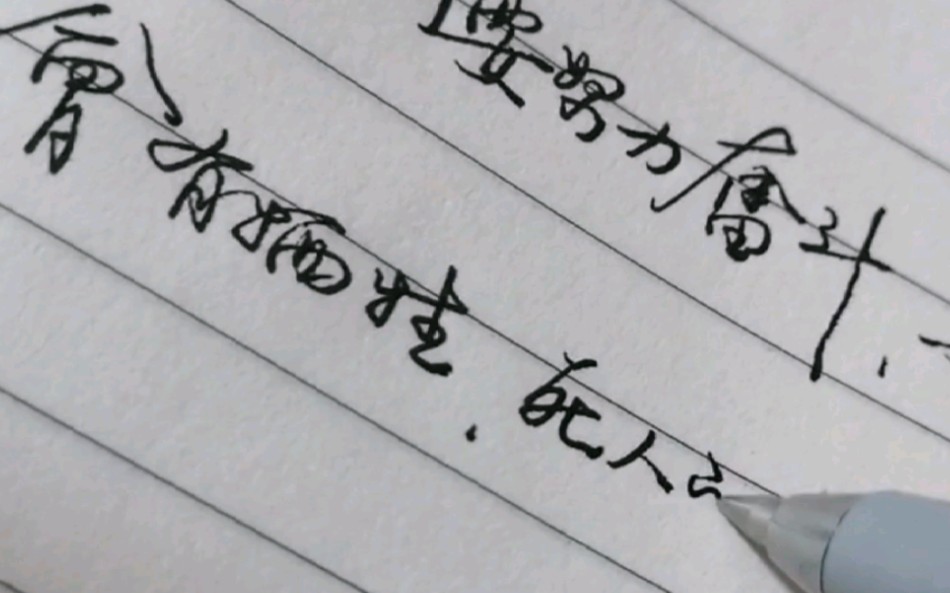 要努力奮斗,
會有牺牲,死人